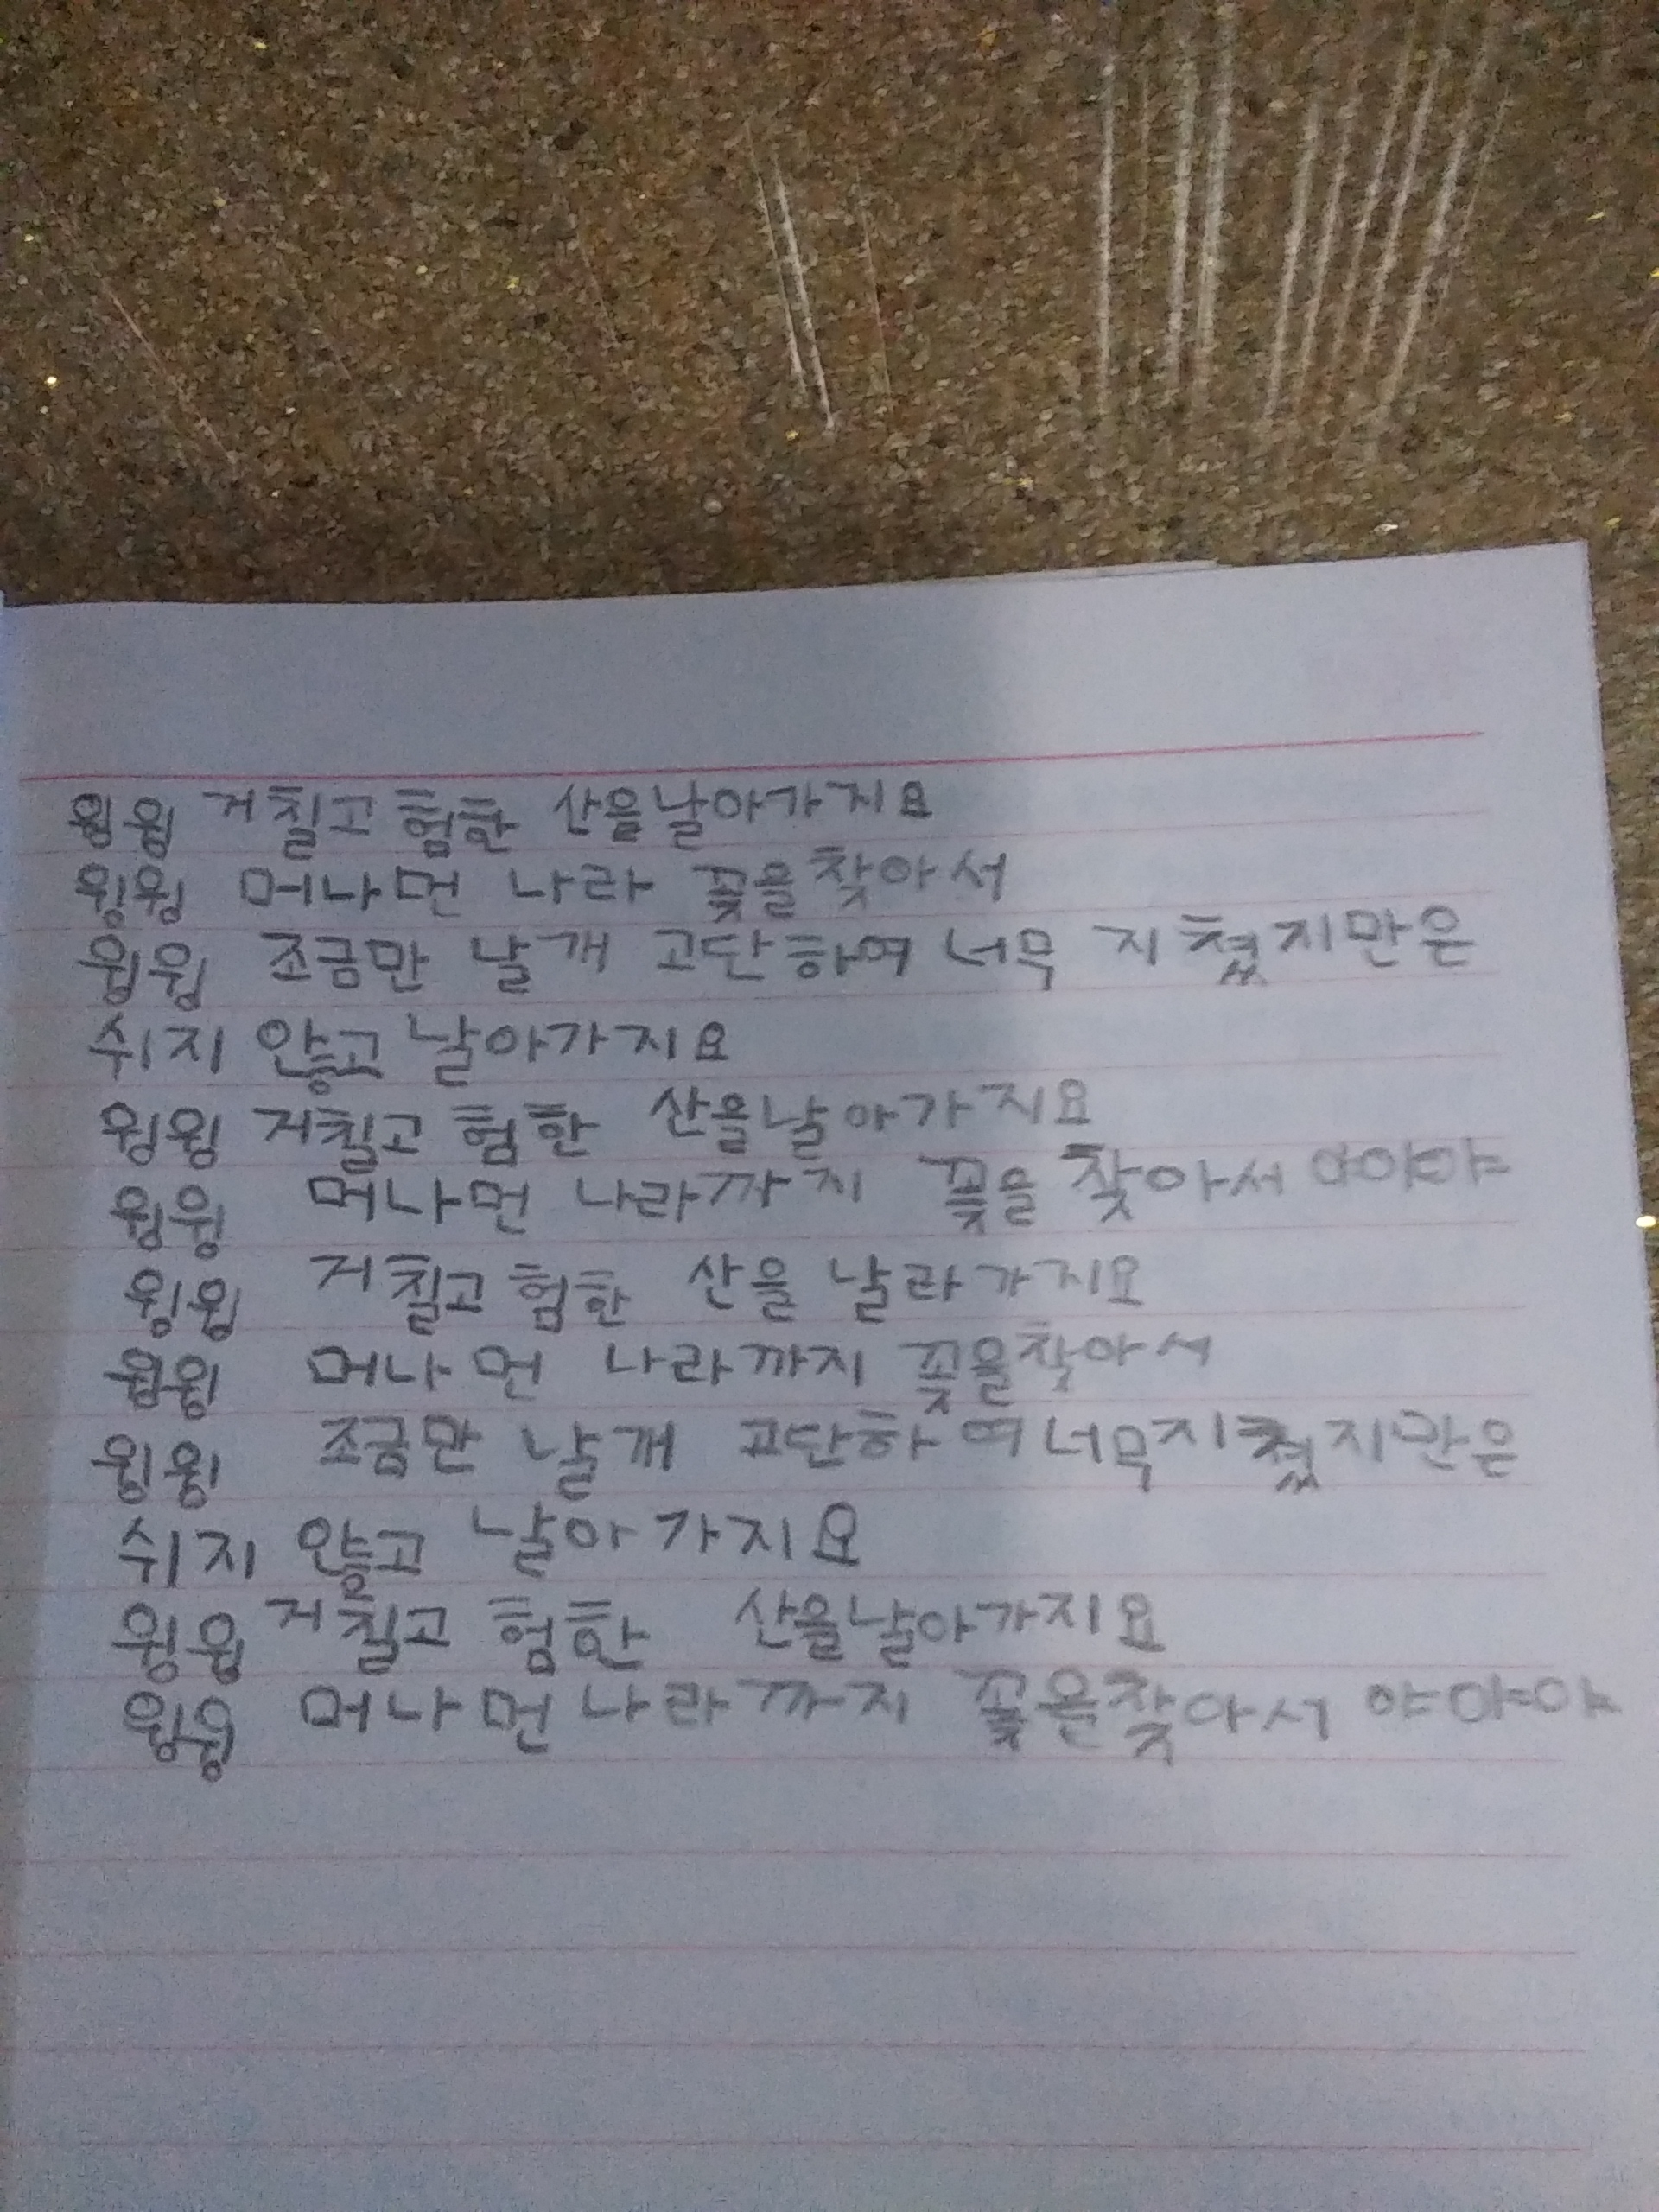 윙윙 거칠고 험한 산을날아가지요
윙윙 머나먼 나라 꽃을찾아서
윙윙 조금만 날개 고단하여 너무 지쳤지만은
쉬지 않고 날아가지요
윙윙 거칠고 험한 산을날아가지요
윙윙 머나먼 나라까지 꽃을 찾아서 야야야
윙윙 거칠고 험한 산을 날라가지요
윙윙 머나먼 나라까지 꽃을찾아서
윙윙 조금만 날개 고단하여 너무지쳤지만은
쉬지 않고 날아가지요
윙윙 거칠고 험한 산을날아가지요
윙윙 머나먼 나라까지 꽃을찾아서 야야야